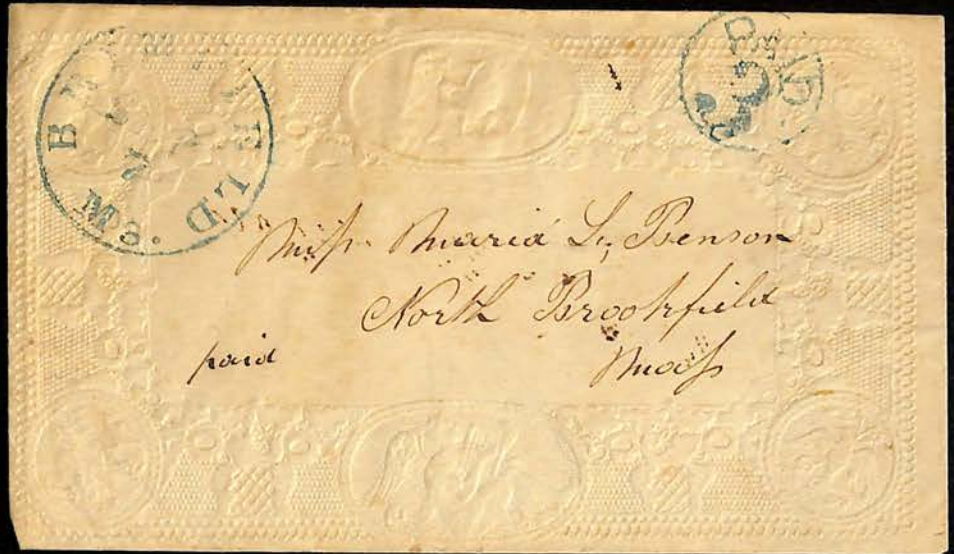 PAID
3
Miſs Maria L, Benson
North Brookfield
paid
Maſs